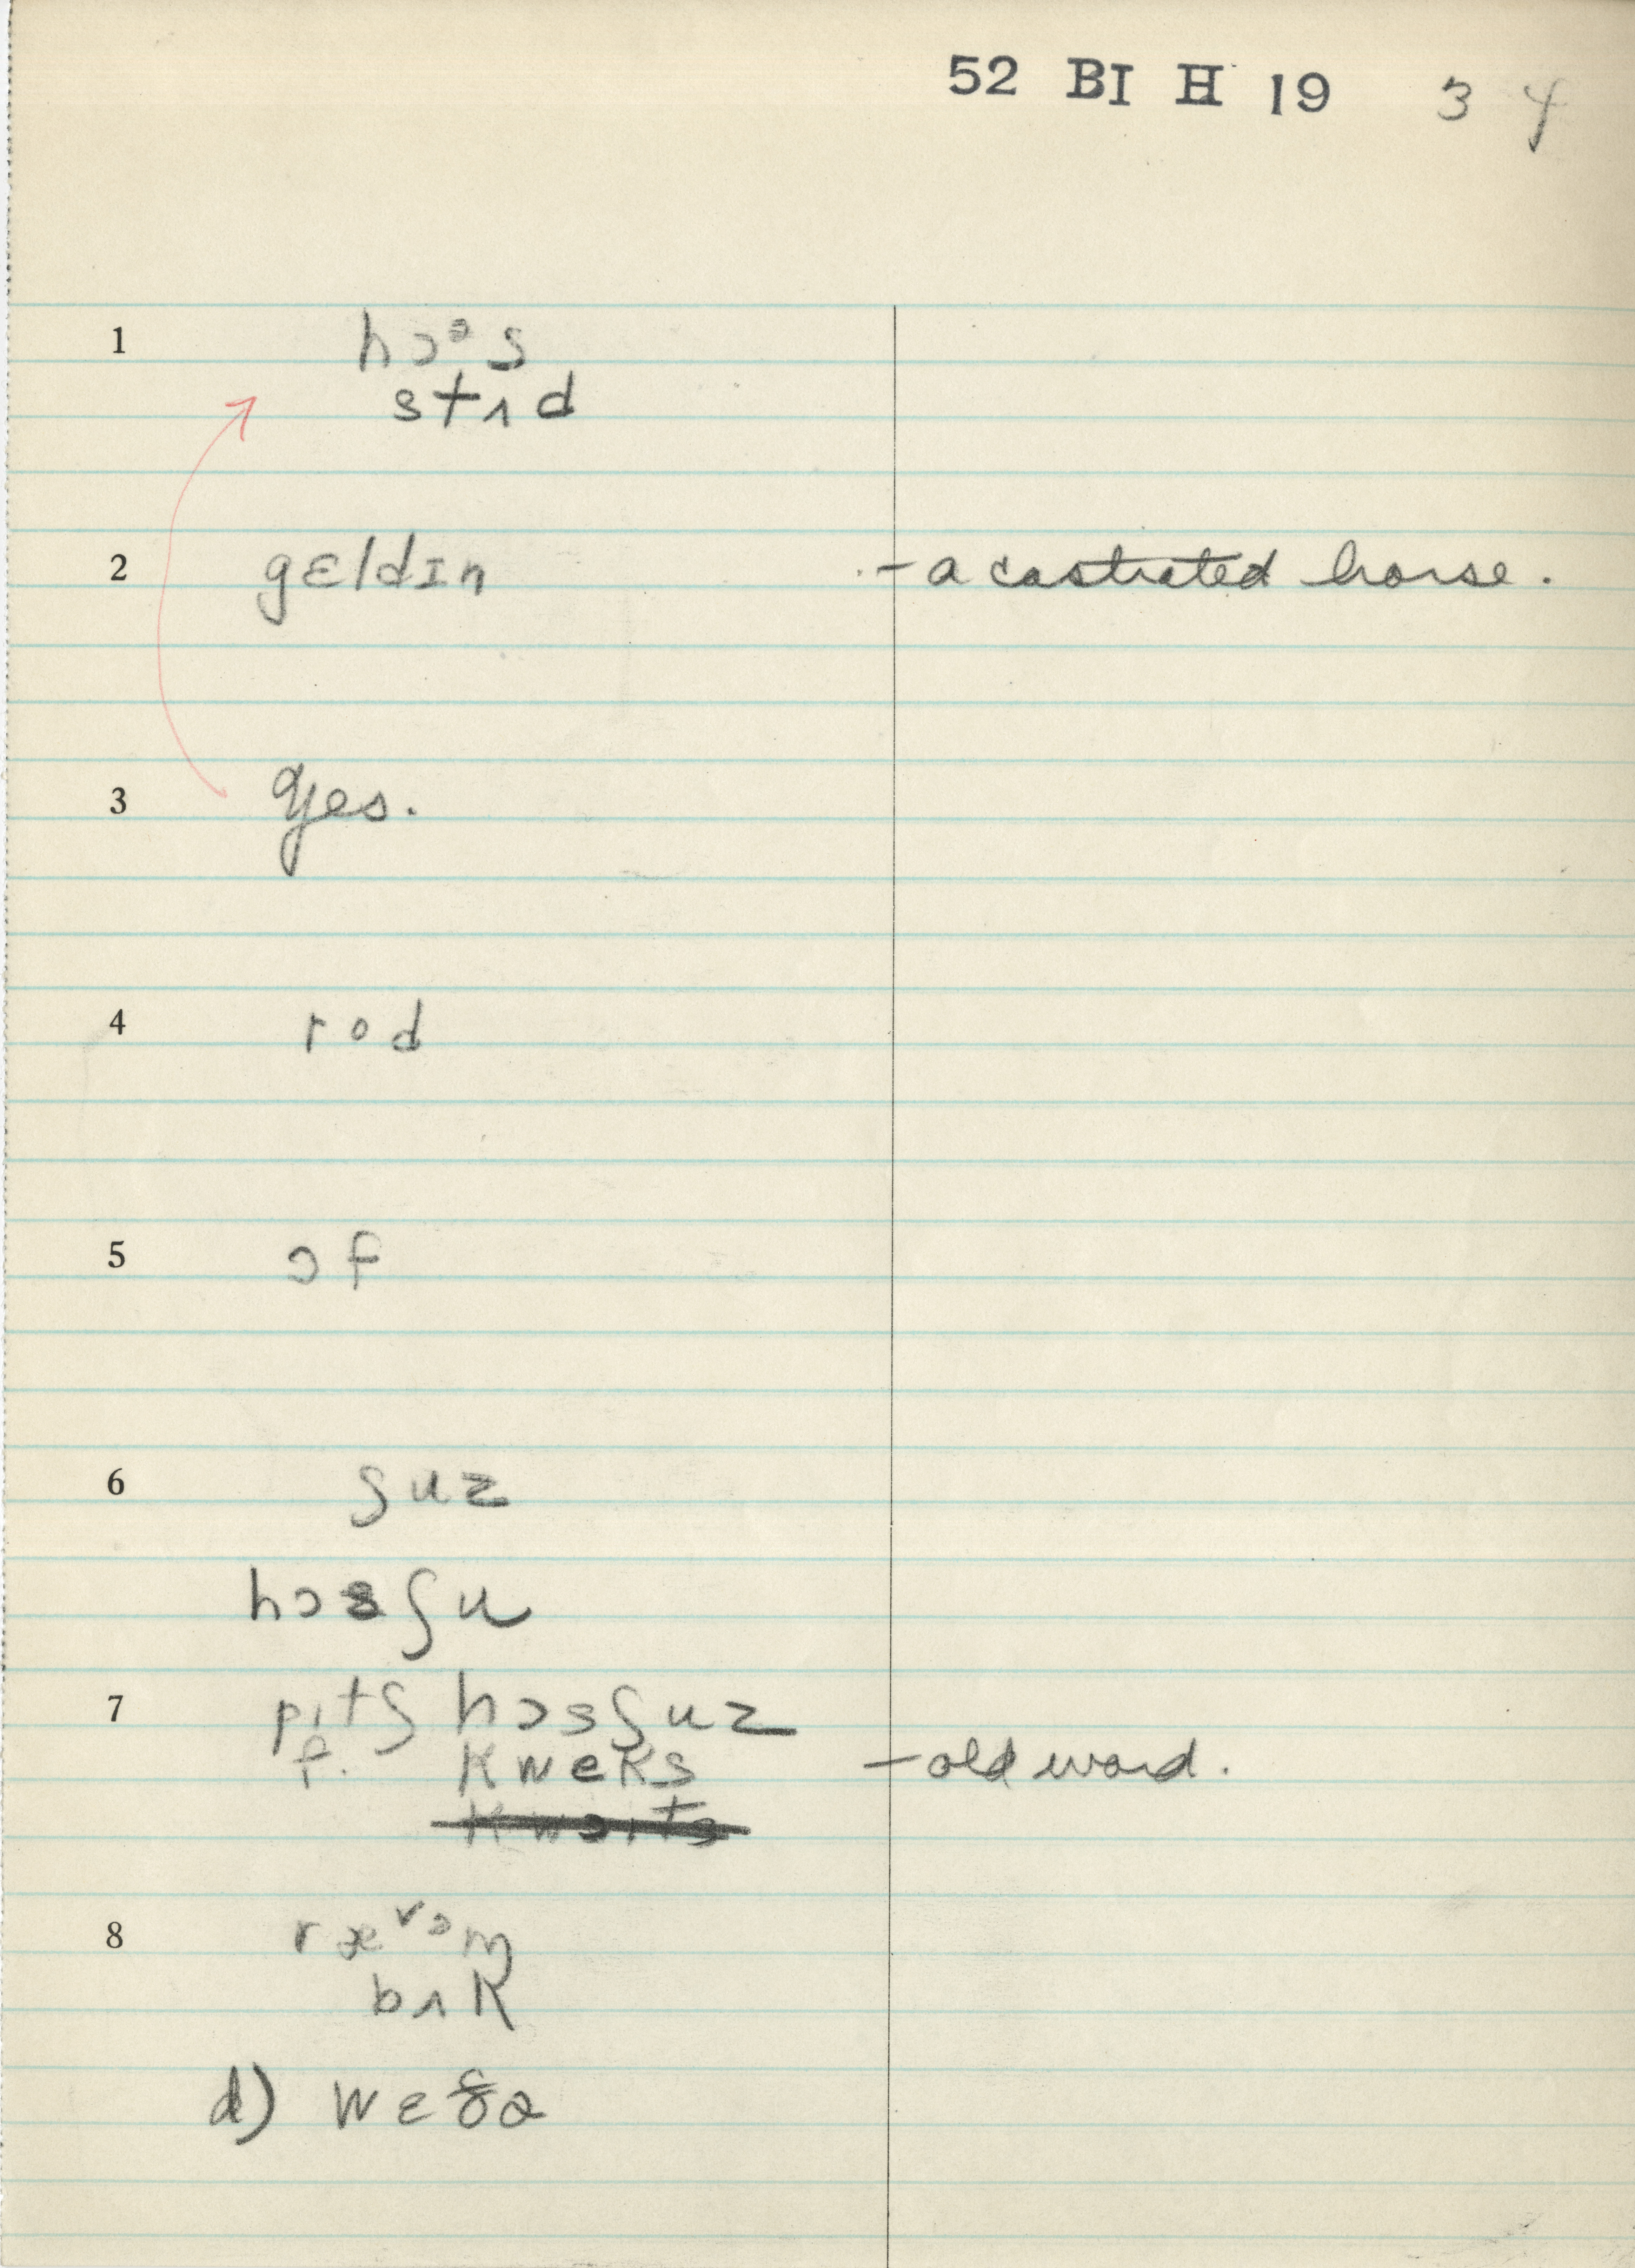 52 BI H 19 3 4
1 hɔᵊs
stʌd
2 gɛldɪn - a castrated horse.
3 yes.
4 rod
5 ɔf
6 ʃuz
hɔsʃu
7 pɪtʃ hɔsʃuz
f. kweks - old word.
8 rævəm
bʌk
d) wɛðə